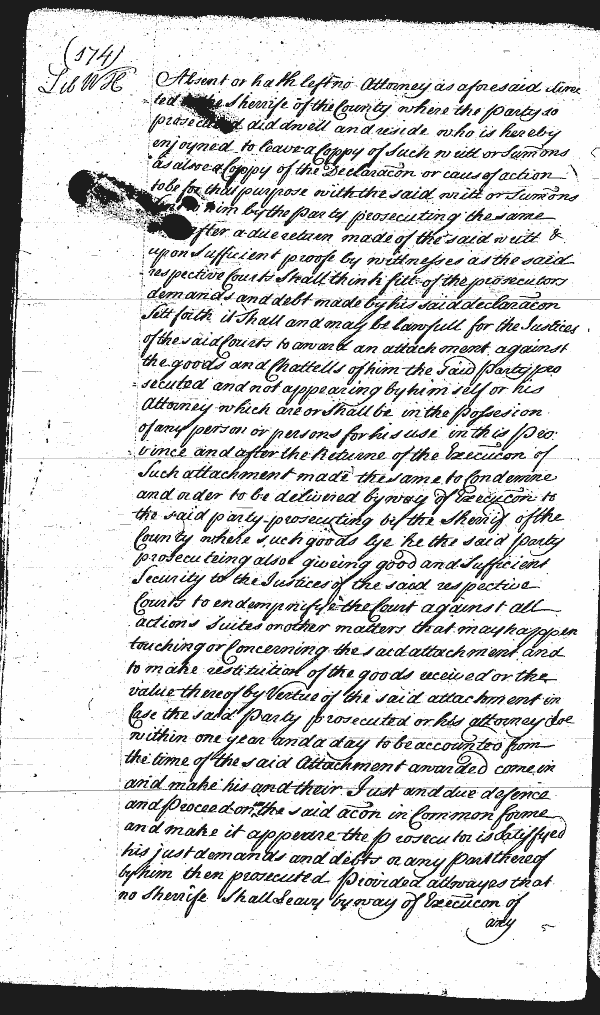 (174)
Lib WH
Absent or hath left no Attorney as aforesaid
ted the Sherrife of the County where the Party so
prosecuted did dwell and reside who is hereby
enjoyned to leave a Coppy of Such writt or Sumons
as alsoe a Coppy of the Declaracon or cause of action
to be for that purpose with the said writt or Sumons
him by the Party prosecuting the same
after a due return made of the said writt &
upon Sufficient proofe by wittnesses as the said
respective Courts Shall think fitt of the prosecutors
demands and debt made by his said declaracon
Sett forth it Shall and may be lawfull for the Justices
of the said Courts to award an attachment against
the goods and Chattells of him the Said Party pro
secuted and not appearing by himself or his
Attorney which are or Shall be in the Possesion
of any person or persons for his use in this Pro
vince and after the Returne of the Execucon of
Such attachment made the same to Condemne
and order to be delivered by way of Execucon to
the said party prosecuting by the Sherrif of the
County where such goods lye he the said Party
prosecuteing alsoe giveing good and Sufficient
Security to the Justices of the said respective
Courts to endempnifye the Court against all
actions Suites or other matters that may happen
touching or Concerning the said attachment and
to make restitution of the goods received or the
value thereof by Vertue of the said attachment in
Case the said Party prosecuted or his attorney doe
within one year and a day to be accounted from
the time of the said Attachment awarded come in
and make his and their Just and due defence
and Proceed on the said acon in Common forme
and make it appeare the Prosecutor is Sattisfyed
his just demands and debts or any Part thereof
by him then prosecuted Provided allwayes that
no Sherrife Shall Leavy by way of Execucon of
any